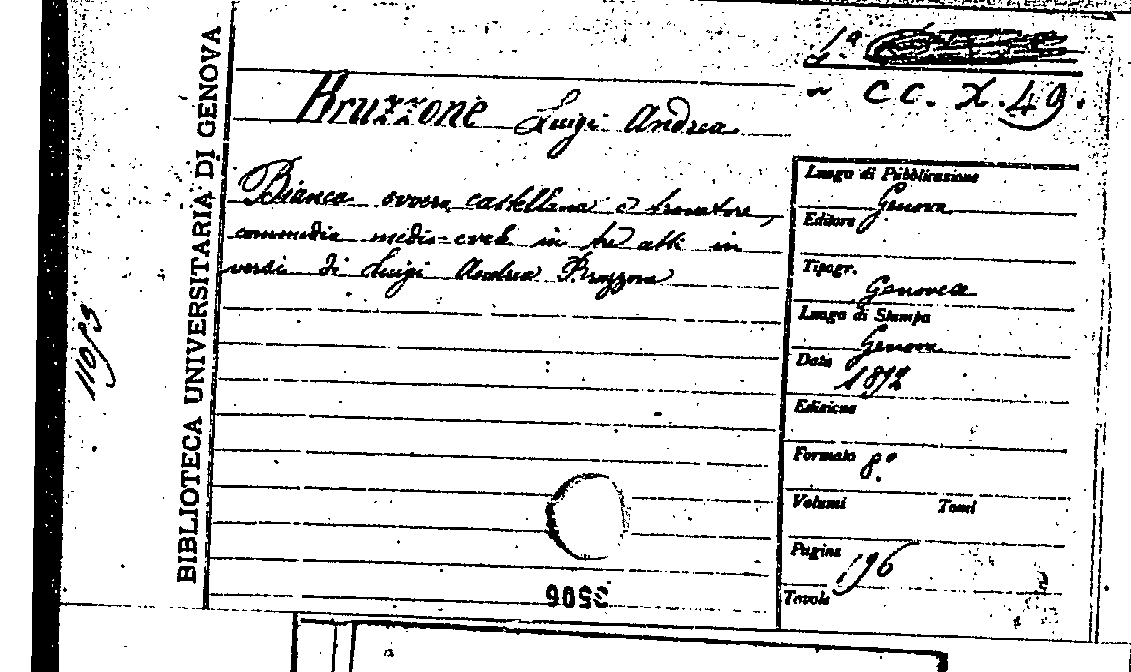 BIBLIOTECA UNIVERSITARIA DI GENOVA
L.ª
CC. X. 49.
Bruzzone Luigi Andrea
Bianca ovvero castellana e trovatore,
commedia medio-evale in tre atti in
versi di Luigi Andrea Bruzzone
Luogo di Pubblicazione
Genova
Editore
Tipogr.
Genovese
Luogo di Stampa
Genova
Data
1872
Edizione
Formato 8.º
Volumi Tomi
Pagine 196
Tavole